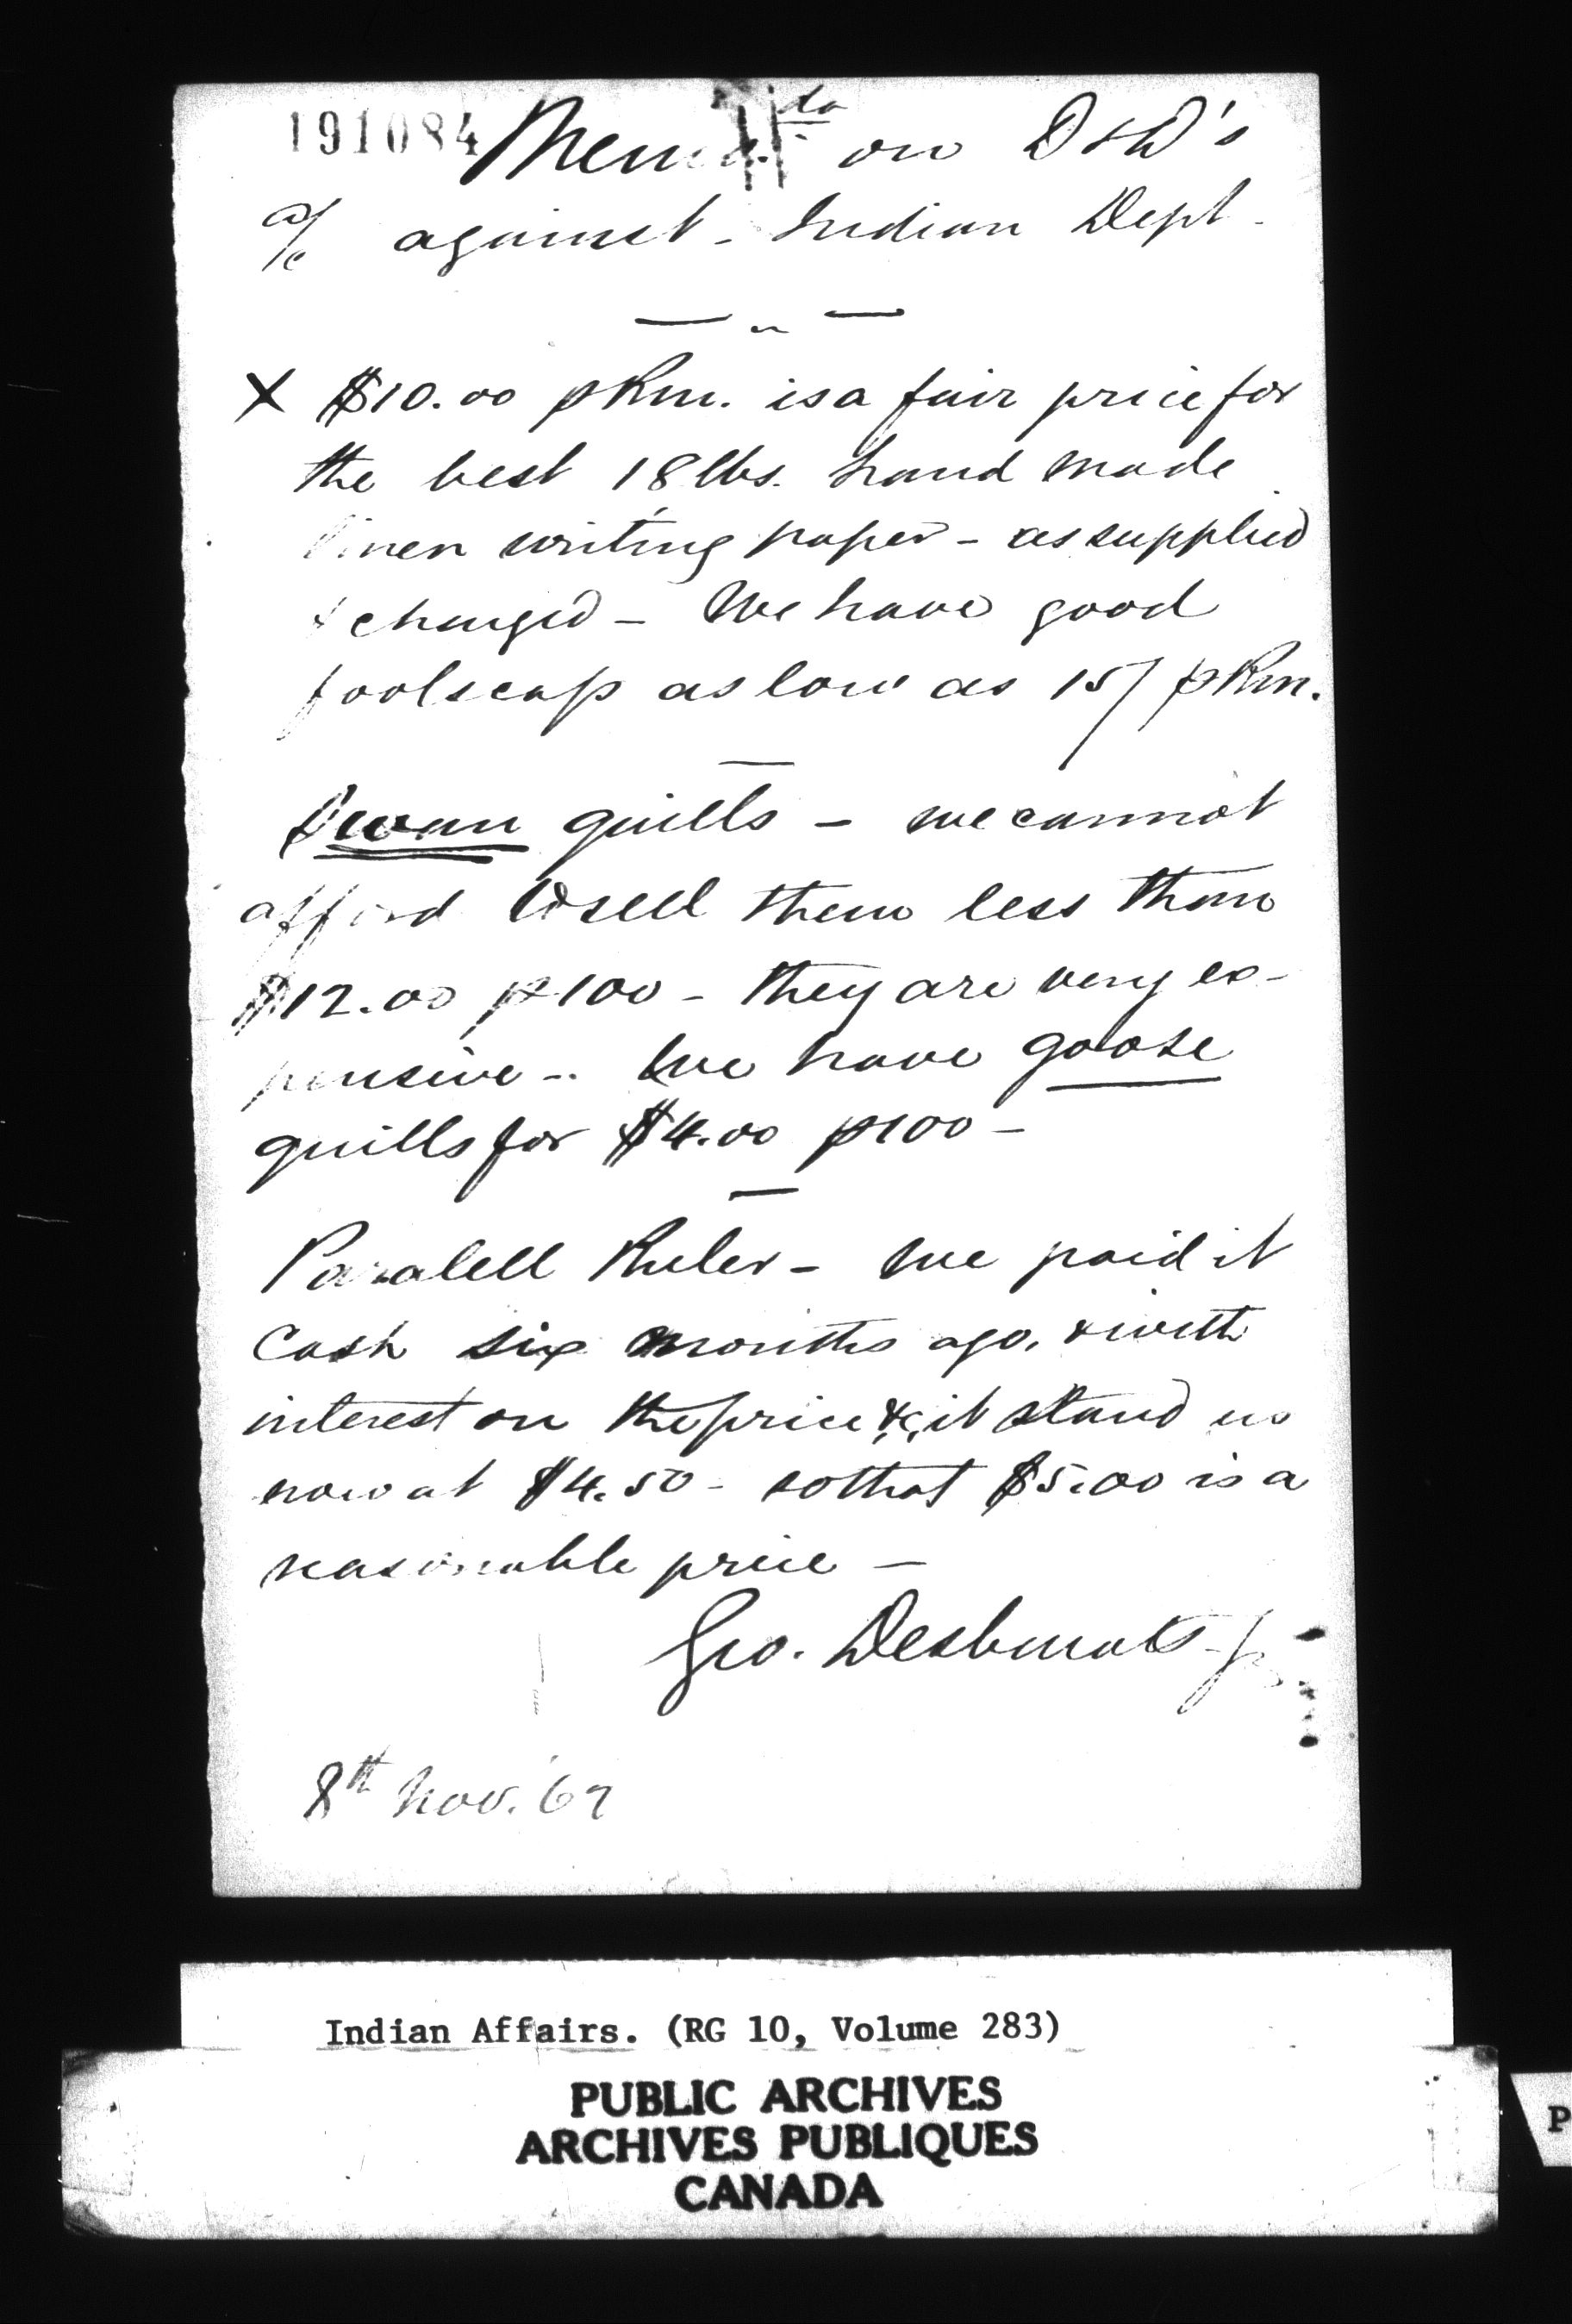 191084
Memo. on D & D's
a/c against Indian Dept.
X $10.00 p Rm. is a fair price for
the best 18 lbs. hand made
linen writing paper - as supplied
& charged - We have good
foolscap as low as 15/ p Rm.
Swan quills - we cannot
afford to sell them less than
$12.00 p 100 - they are very ex-
pensive - We have goose
quills for $4.00 p 100 -
Paralell Ruler - we paid it
Cash six months ago, & with
interest on the price &c, it stand us
now at $4.50 - so that $5.00 is a
reasonable price -
Geo. Desbarats Jr
8th Nov. '67
Indian Affairs. (RG 10, Volume 283)
PUBLIC ARCHIVES
ARCHIVES PUBLIQUES
CANADA
P